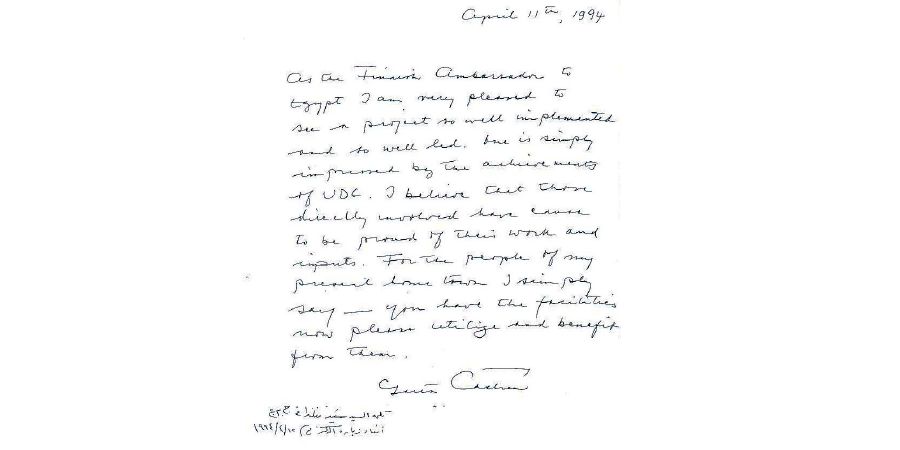 April 11th, 1994
As the Finnish Ambassador to
Egypt I am very pleased to
see a project so well implemented
and so well led. One is simply
impressed by the achievements
of UDC. I believe that those
directly involved have cause
to be proud of their work and
inputs. For the people of my
present home town I simply
say — you have the facilities
now please utilize and benefit
from them.